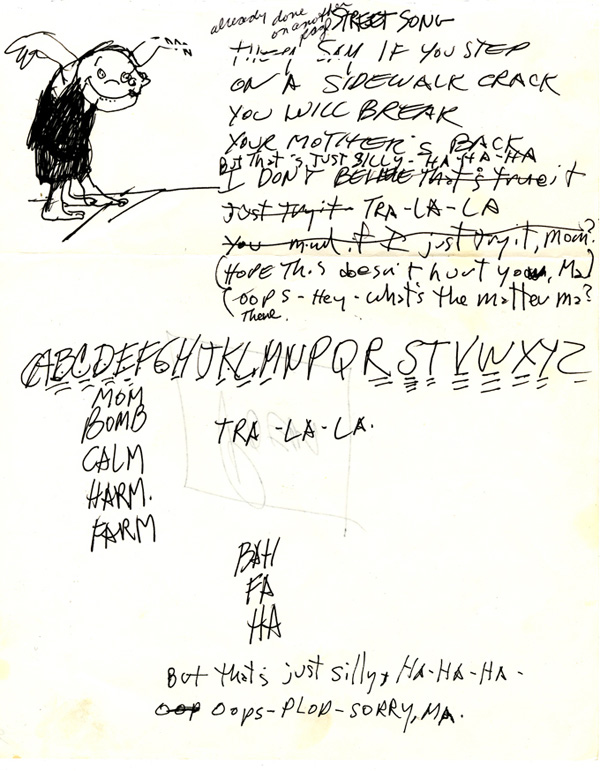 already done
on another
page
STREET SONG
THEY SAY IF YOU STEP
ON A SIDEWALK CRACK
YOU WILL BREAK
YOUR MOTHER'S BACK
BUT THAT'S JUST SILLY - HA-HA-HA
I DON'T BELIEVE THAT'S TRUE
Just try it TRA-LA-LA
You mind if I just try it, Mom?
(HOPE THIS doesn't hurt you, Ma)
(OOPS - Hey - what's the matter ma?
There.
ABCDEFGHJKLMNPQRSTVWXYZ
MOM
BOMB
CALM
HARM.
FARM
TRA-LA-LA.
BAH
FA
HA
But that's just silly, HA-HA-HA-
OOP OOPS-PLOP-SORRY, MA.